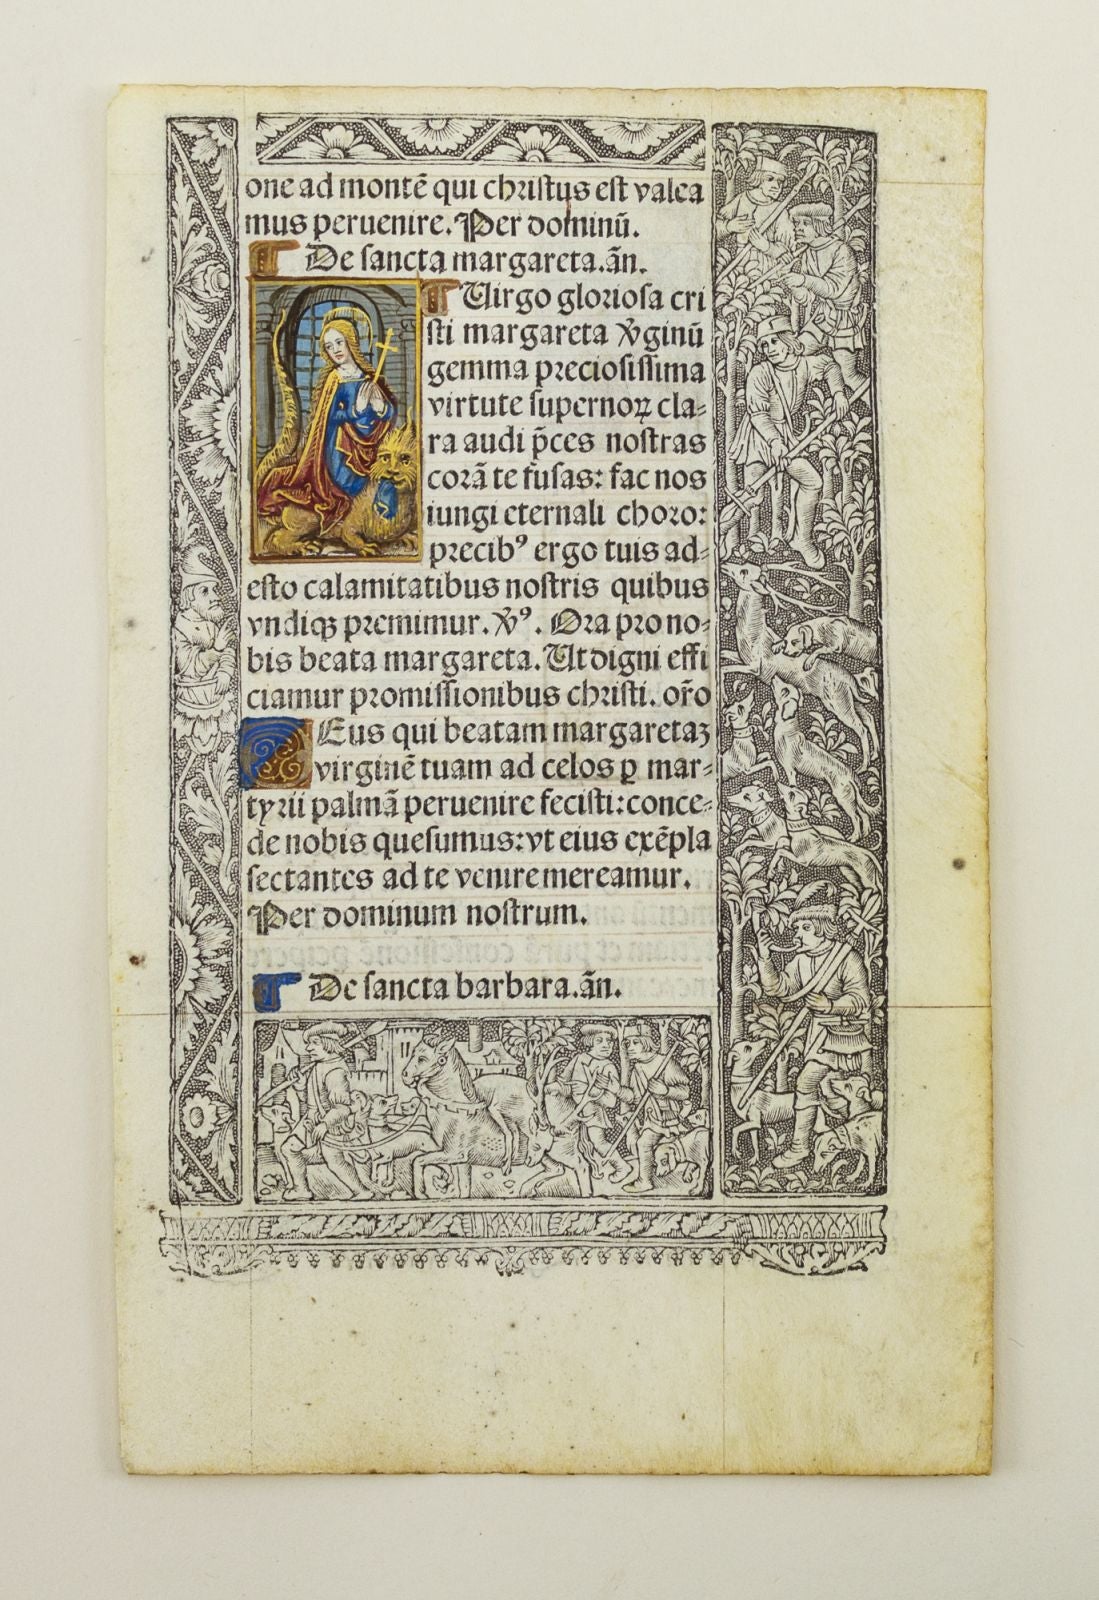 one ad montē qui christus est valea
mus peruenire. Per dominū.
De sancta margareta. añ.
Uirgo gloriosa cri
sti margareta v̄ginū
gemma preciosissima
virtute supernoꝝ cla⸗
ra audi p̄ces nostras
corā te fusas: fac nos
iungi eternali choro:
precibꝰ ergo tuis ad⸗
esto calamitatibus nostris quibus
vndiqꝫ premimur. v̄ꝰ. Ora pro no⸗
bis beata margareta. Ut digni effi
ciamur promissionibus christi. or̄o
Eus qui beatam margaretaꝫ
virginē tuam ad celos ꝑ mar⸗
tyrii palmā peruenire fecisti: conce⸗
de nobis quesumus: vt eius exēpla
sectantes ad te venire mereamur.
Per dominum nostrum.
De sancta barbara. añ.